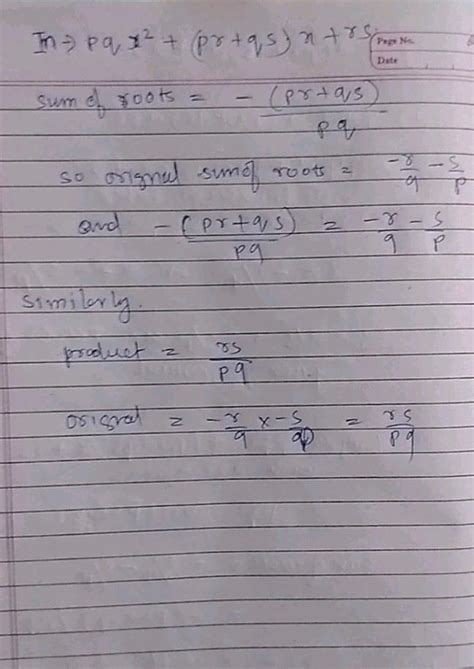 In → pq x² + (pr+qs) x + rs.
Page No.
Date
sum of roots = - (pr+qs) / pq
so orignal sum of roots = -r/q - s/p
and - (pr+qs) / pq = -r/q - s/p
similarly.
product = rs / pq
orignal = -r/q × -s/p = rs / pq